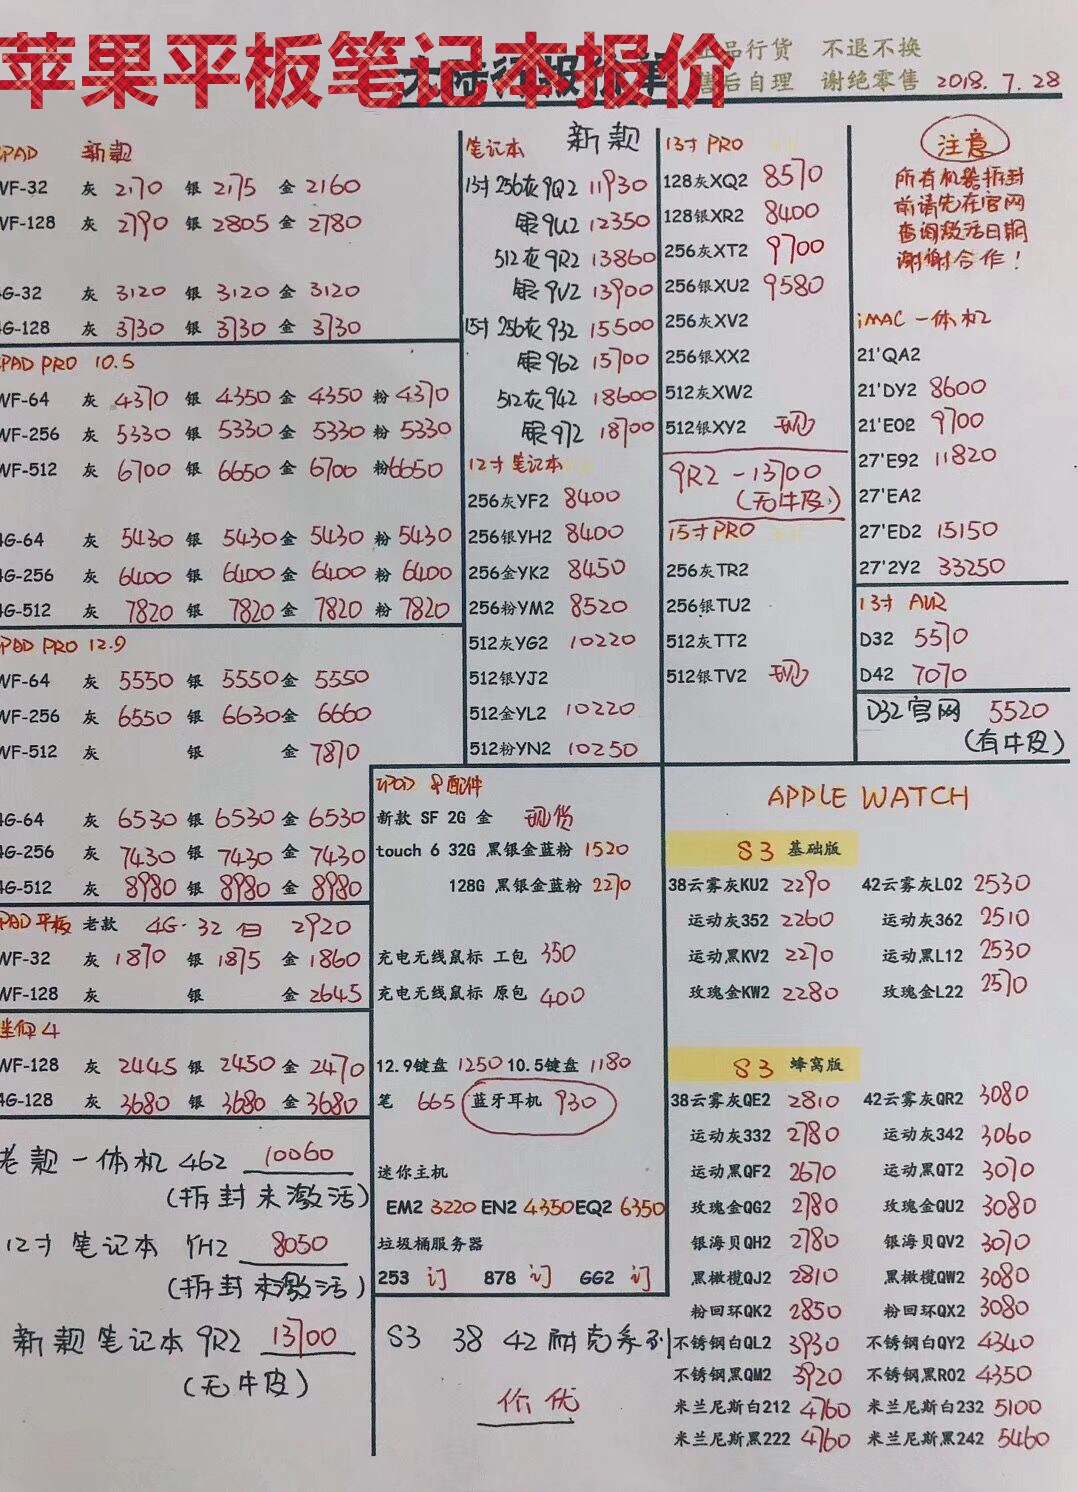 苹果平板笔记本报价
大陆行报价单
正品行货 不退不换
售后自理 谢绝零售 2018.7.28
IPAD 新款
WF-32 灰 2170 银 2175 金 2160
WF-128 灰 2790 银 2805 金 2780
4G-32 灰 3120 银 3120 金 3120
4G-128 灰 3730 银 3730 金 3730
IPAD PRO 10.5
WF-64 灰 4370 银 4350 金 4350 粉 4370
WF-256 灰 5330 银 5330 金 5330 粉 5330
WF-512 灰 6700 银 6650 金 6700 粉 6650
4G-64 灰 5430 银 5430 金 5430 粉 5430
4G-256 灰 6400 银 6400 金 6400 粉 6400
4G-512 灰 7820 银 7820 金 7820 粉 7820
IPAD PRO 12.9
WF-64 灰 5550 银 5550 金 5550
WF-256 灰 6550 银 6630 金 6660
WF-512 灰 银 金 7870
4G-64 灰 6530 银 6530 金 6530
4G-256 灰 7430 银 7430 金 7430
4G-512 灰 8980 银 8980 金 8980
IPAD 平板 老款 4G-32 白 2920
WF-32 灰 1870 银 1875 金 1860
WF-128 灰 银 金 2645
迷你 4
WF-128 灰 2445 银 2450 金 2470
4G-128 灰 3680 银 3680 金 3680
老款一体机 462 10060
(拆封未激活)
12寸 笔记本 YH2 8050
(拆封未激活)
新款笔记本 9R2 13700
(无牛皮)
笔记本 新款
13寸 256灰 9Q2 11930
银 9U2 12350
512灰 9R2 13860
银 9V2 13900
15寸 256灰 932 15500
银 962 15700
512灰 942 18600
银 972 18700
12寸 笔记本
256灰YF2 8400
256银YH2 8400
256金YK2 8450
256粉YM2 8520
512灰YG2 10220
512银YJ2
512金YL2 10220
512粉YN2 10250
13寸 PRO
128灰XQ2 8570
128银XR2 8400
256灰XT2 9700
256银XU2 9580
256灰XV2
256银XX2
512灰XW2
512银XY2 现
9R2 -13700
(无牛皮)
15寸 PRO
256灰TR2
256银TU2
512灰TT2
512银TV2 现
注意
所有机器拆封
前请先在官网
查询激活日期
谢谢合作!
iMAC 一体机
21'QA2
21'DY2 8600
21'E02 9700
27'E92 11820
27'EA2
27'ED2 15150
27'2Y2 33250
13寸 AIR
D32 5570
D42 7070
D32 官网 5520
(有牛皮)
IPOD 及配件
新款 SF 2G 金 现货
touch 6 32G 黑银金蓝粉 1520
128G 黑银金蓝粉 2270
充电无线鼠标 工包 350
充电无线鼠标 原包 400
12.9键盘 1250 10.5键盘 1180
笔 665 蓝牙耳机 930
迷你主机
EM2 3220 EN2 4350 EQ2 6350
垃圾桶服务器
253 订 878 订 GG2 订
S3 38 42 耐克系列
价优
APPLE WATCH
S3 基础版
38云雾灰KU2 2290 42云雾灰L02 2530
运动灰352 2260 运动灰362 2510
运动黑KV2 2270 运动黑L12 2530
玫瑰金KW2 2280 玫瑰金L22 2570
S3 蜂窝版
38云雾灰QE2 2810 42云雾灰QR2 3080
运动灰332 2780 运动灰342 3060
运动黑QF2 2670 运动黑QT2 3070
玫瑰金QG2 2780 玫瑰金QU2 3080
银海贝QH2 2780 银海贝QV2 3070
黑橄榄QJ2 2810 黑橄榄QW2 3080
粉回环QK2 2850 粉回环QX2 3080
不锈钢白QL2 3930 不锈钢白QY2 4340
不锈钢黑QM2 3920 不锈钢黑R02 4350
米兰尼斯白212 4760 米兰尼斯白232 5100
米兰尼斯黑222 4760 米兰尼斯黑242 5460